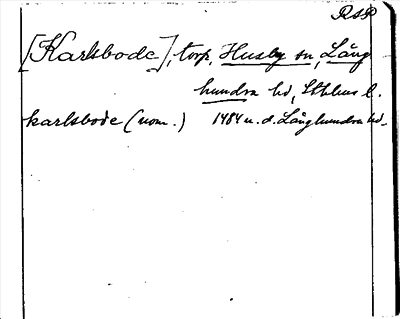 RSP
[Karlsbode], torp, Husby sn, Lång
hundra hd, Sthlms l.
karlsbode (nom.) 1484 u. d. Långhundra hd.